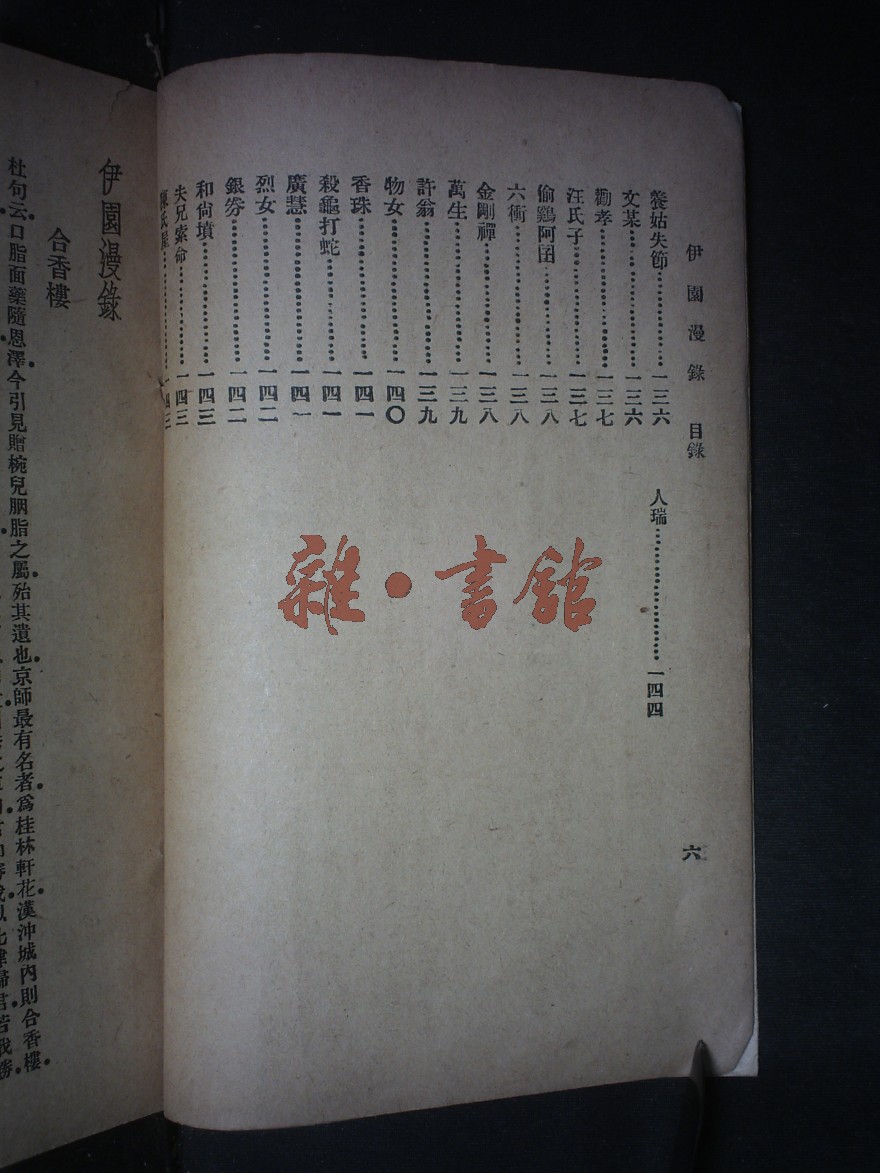 伊園漫錄 目錄
養姑失節……………一三六
文某……………一三六
勸孝……………一三七
汪氏子……………一三七
偷鷄阿囝……………一三八
六衝……………一三八
金剛禪……………一三八
萬生……………一三九
許翁……………一三九
物女……………一四〇
香珠……………一四一
殺龜打蛇……………一四一
廣慧……………一四一
烈女……………一四二
銀劵……………一四二
和尙墳……………一四三
夫兄索命……………一四三
人瑞……………一四四
六
雜·書館
伊園漫錄
合香樓
杜句云口脂面藥隨恩澤今引見贈椀兒胭脂之屬殆其遺也京師最有名者爲桂林軒花漢沖城內則合香樓